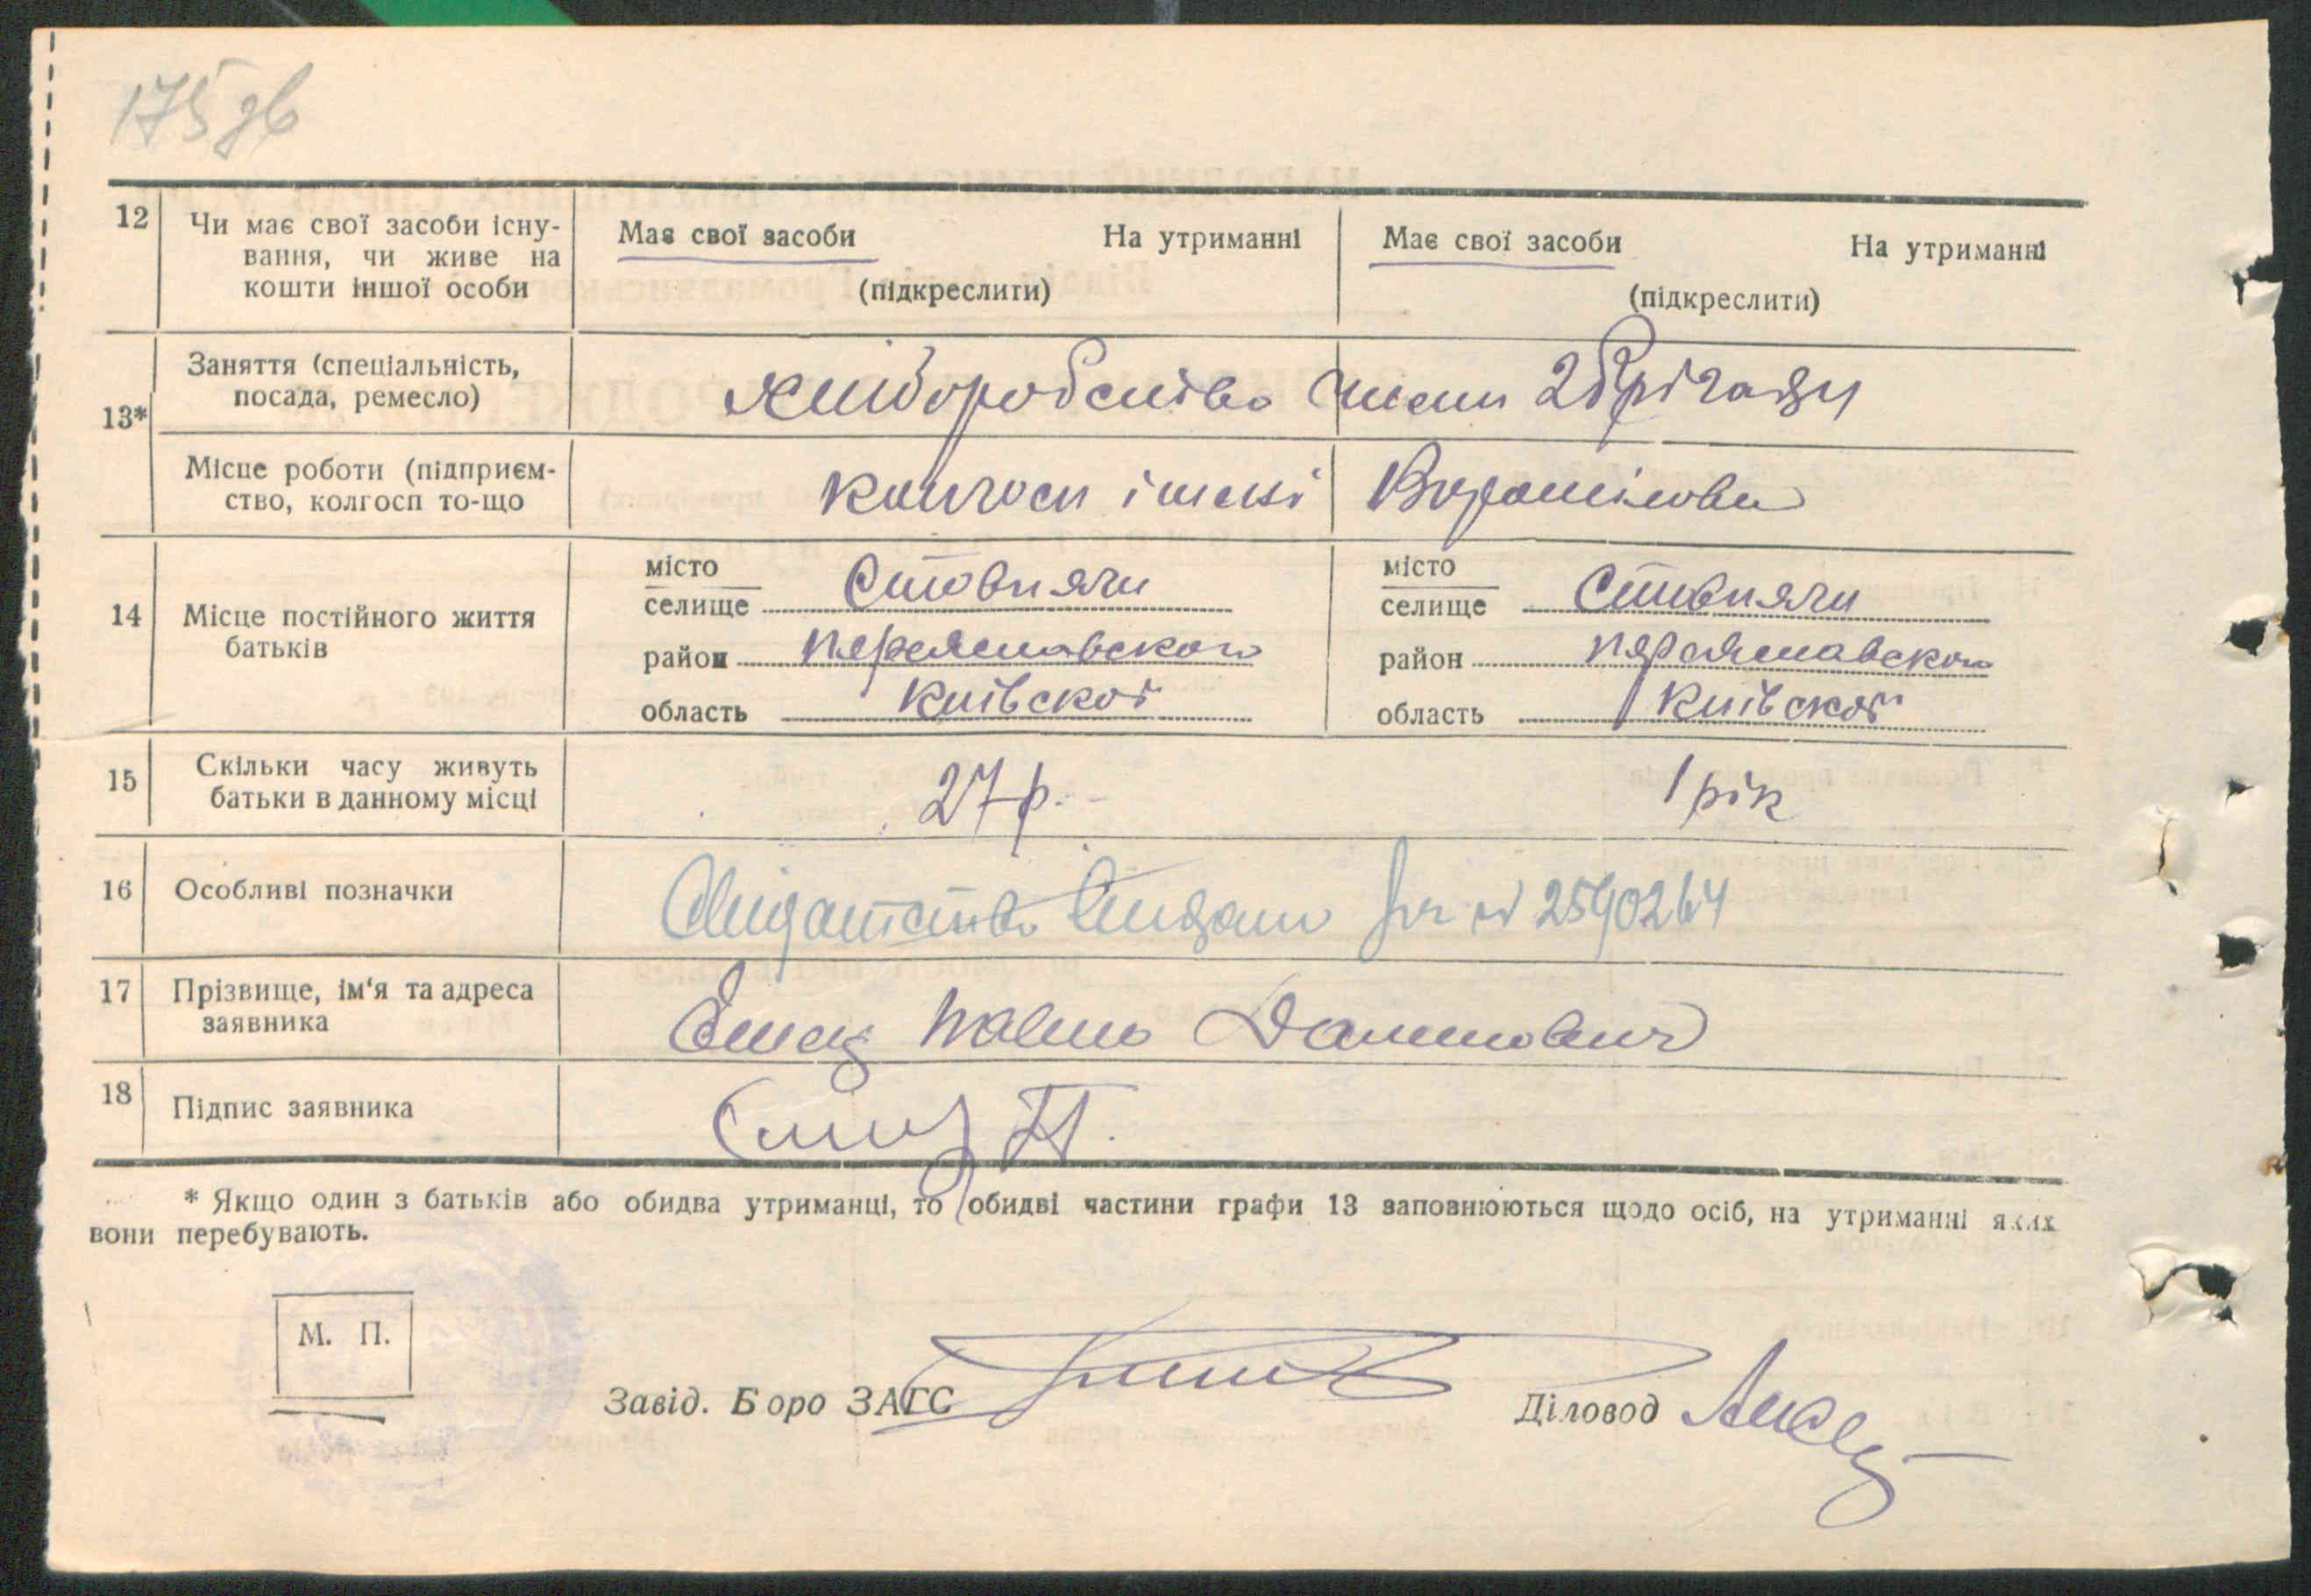 175 дв
12 Чи має свої засоби існу- Має свої засоби На утриманні Має свої засоби На утриманні
вання, чи живе на
кошти іншої особи (підкреслити) (підкреслити)
Заняття (спеціальність,
посада, ремесло) хліборобство член 2 брігади
13*
Місце роботи (підприєм-
ство, колгосп то-що колгосп імені Ворошілова
14 Місце постійного життя
батьків
місто
селище Стовпяги
район Переяславского
область Київской
місто
селище Стовпяги
район Переяславского
область Київской
15 Скільки часу живуть
батьки в данному місці 27 р. 1 рік
16 Особливі позначки 2590264
17 Прізвище, ім'я та адреса
заявника Ємец Павло Данилович
18 Підпис заявника Ємец П.
* Якщо один з батьків або обидва утриманці, то обидві частини графи 13 заповнюються щодо осіб, на утриманні яких
вони перебувають.
М. П.
Завід. Боро ЗАГС Діловод